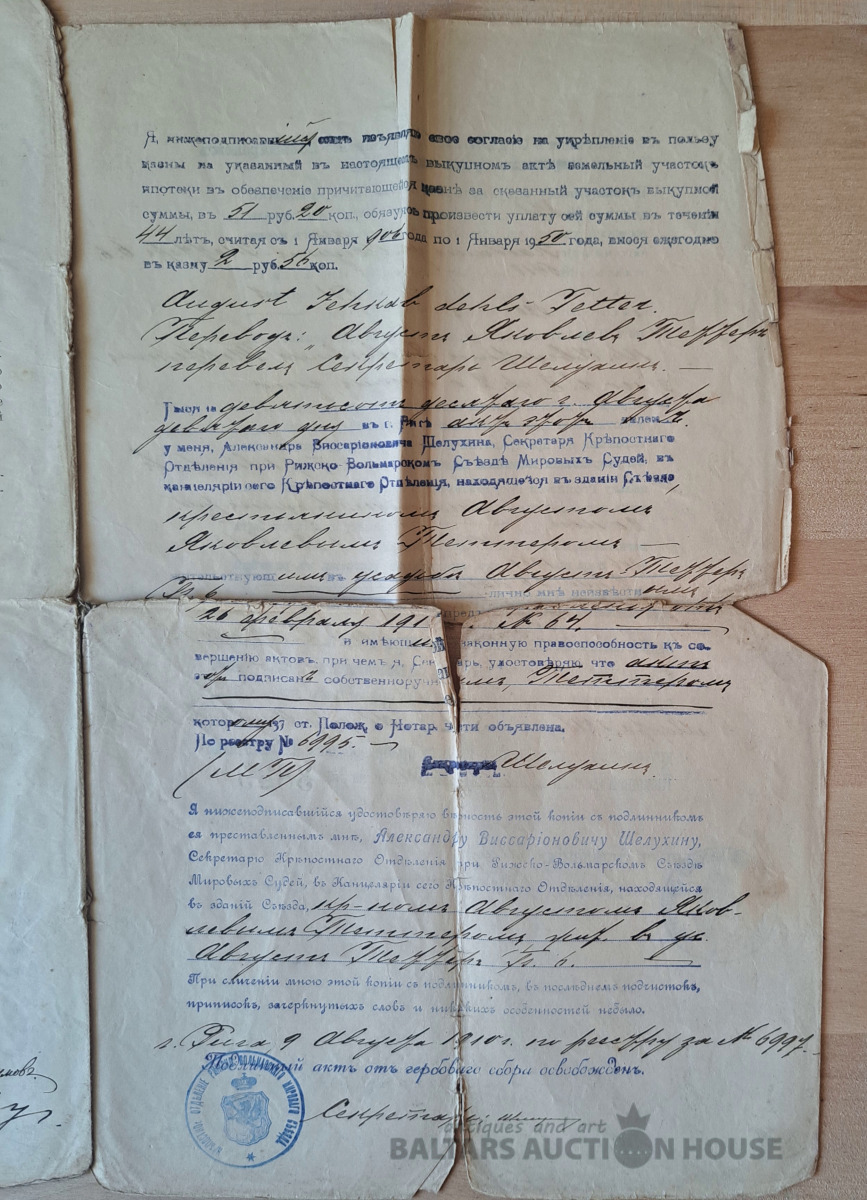 Я, нижеподписавшійся симъ изъявляю свое согласіе на укрѣпленіе въ пользу
казны на указанный въ настоящемъ выкупномъ актѣ земельный участокъ
ипотеки въ обезпеченіе причитающейся казнѣ за сказанный участокъ выкупной
суммы, въ 51 руб. 20 коп., обязуясь произвести уплату сей суммы въ теченіи
44 лѣтъ, считая съ 1 Января 906 года по 1 Января 1950 года, внося ежегодно
въ казну 2 руб. 56 коп.
August Jehkab dehls Tetter.
Переводъ: „Августъ Яковлевъ Теттеръ
перевелъ Секретарь Шелухинъ. —
Тысяча девятьсотъ десятаго г. Августа
девятаго дня въ г. Ригѣ актъ этотъ явленъ
у меня, Александра Виссаріоновича Шелухина, Секретаря Крѣпостнаго
Отдѣленія при Рижско-Вольмарскомъ Съѣздѣ Мировыхъ Судей, въ
канцеляріи сего Крѣпостнаго Отдѣленія, находящейся въ зданіи Съѣзда,
крестьяниномъ Августомъ
Яковлевымъ Теттеромъ —
жительствующимъ въ усадьбѣ Августъ Теттеръ
№ 6 лично мнѣ неизвѣстнымъ
26 февраля 191 № 64.
и имѣющимъ законную правоспособность къ со-
вершенію актовъ, при чемъ я, Секретарь, удостовѣряю, что актъ
этотъ подписанъ собственноручно имъ, Теттеромъ
которому 37 ст. Полож. о Нотар. части объявлена.
По реестру № 6995. —
(М.П.) Шелухинъ.
Я нижеподписавшійся удостовѣряю вѣрность этой копіи съ подлинникомъ
ея преставленнымъ мнѣ, Александру Виссаріоновичу Шелухину,
Секретарю Крѣпостнаго Отдѣленія при Рижско-Вольмарскомъ Съѣздѣ
Мировыхъ Судей, въ Канцеляріи сего Крѣпостнаго Отдѣленія, находящейся
въ зданій Съѣзда, кр-номъ Августомъ Яков-
левымъ Теттеромъ, жит. въ ус.
Августъ Теттеръ № 6. —
При сличеніи мною этой копіи съ подлинникомъ, въ послѣднемъ подчистокъ,
приписокъ, зачеркнутыхъ словъ и никакихъ особенностей небыло.
г. Рига 9 Августа 1910 г. по реестру за № 6997. —
Подлинный актъ отъ гербоваго сбора освобожденъ.
Секретарь:
antiques and art
BALTARS AUCTION HOUSE